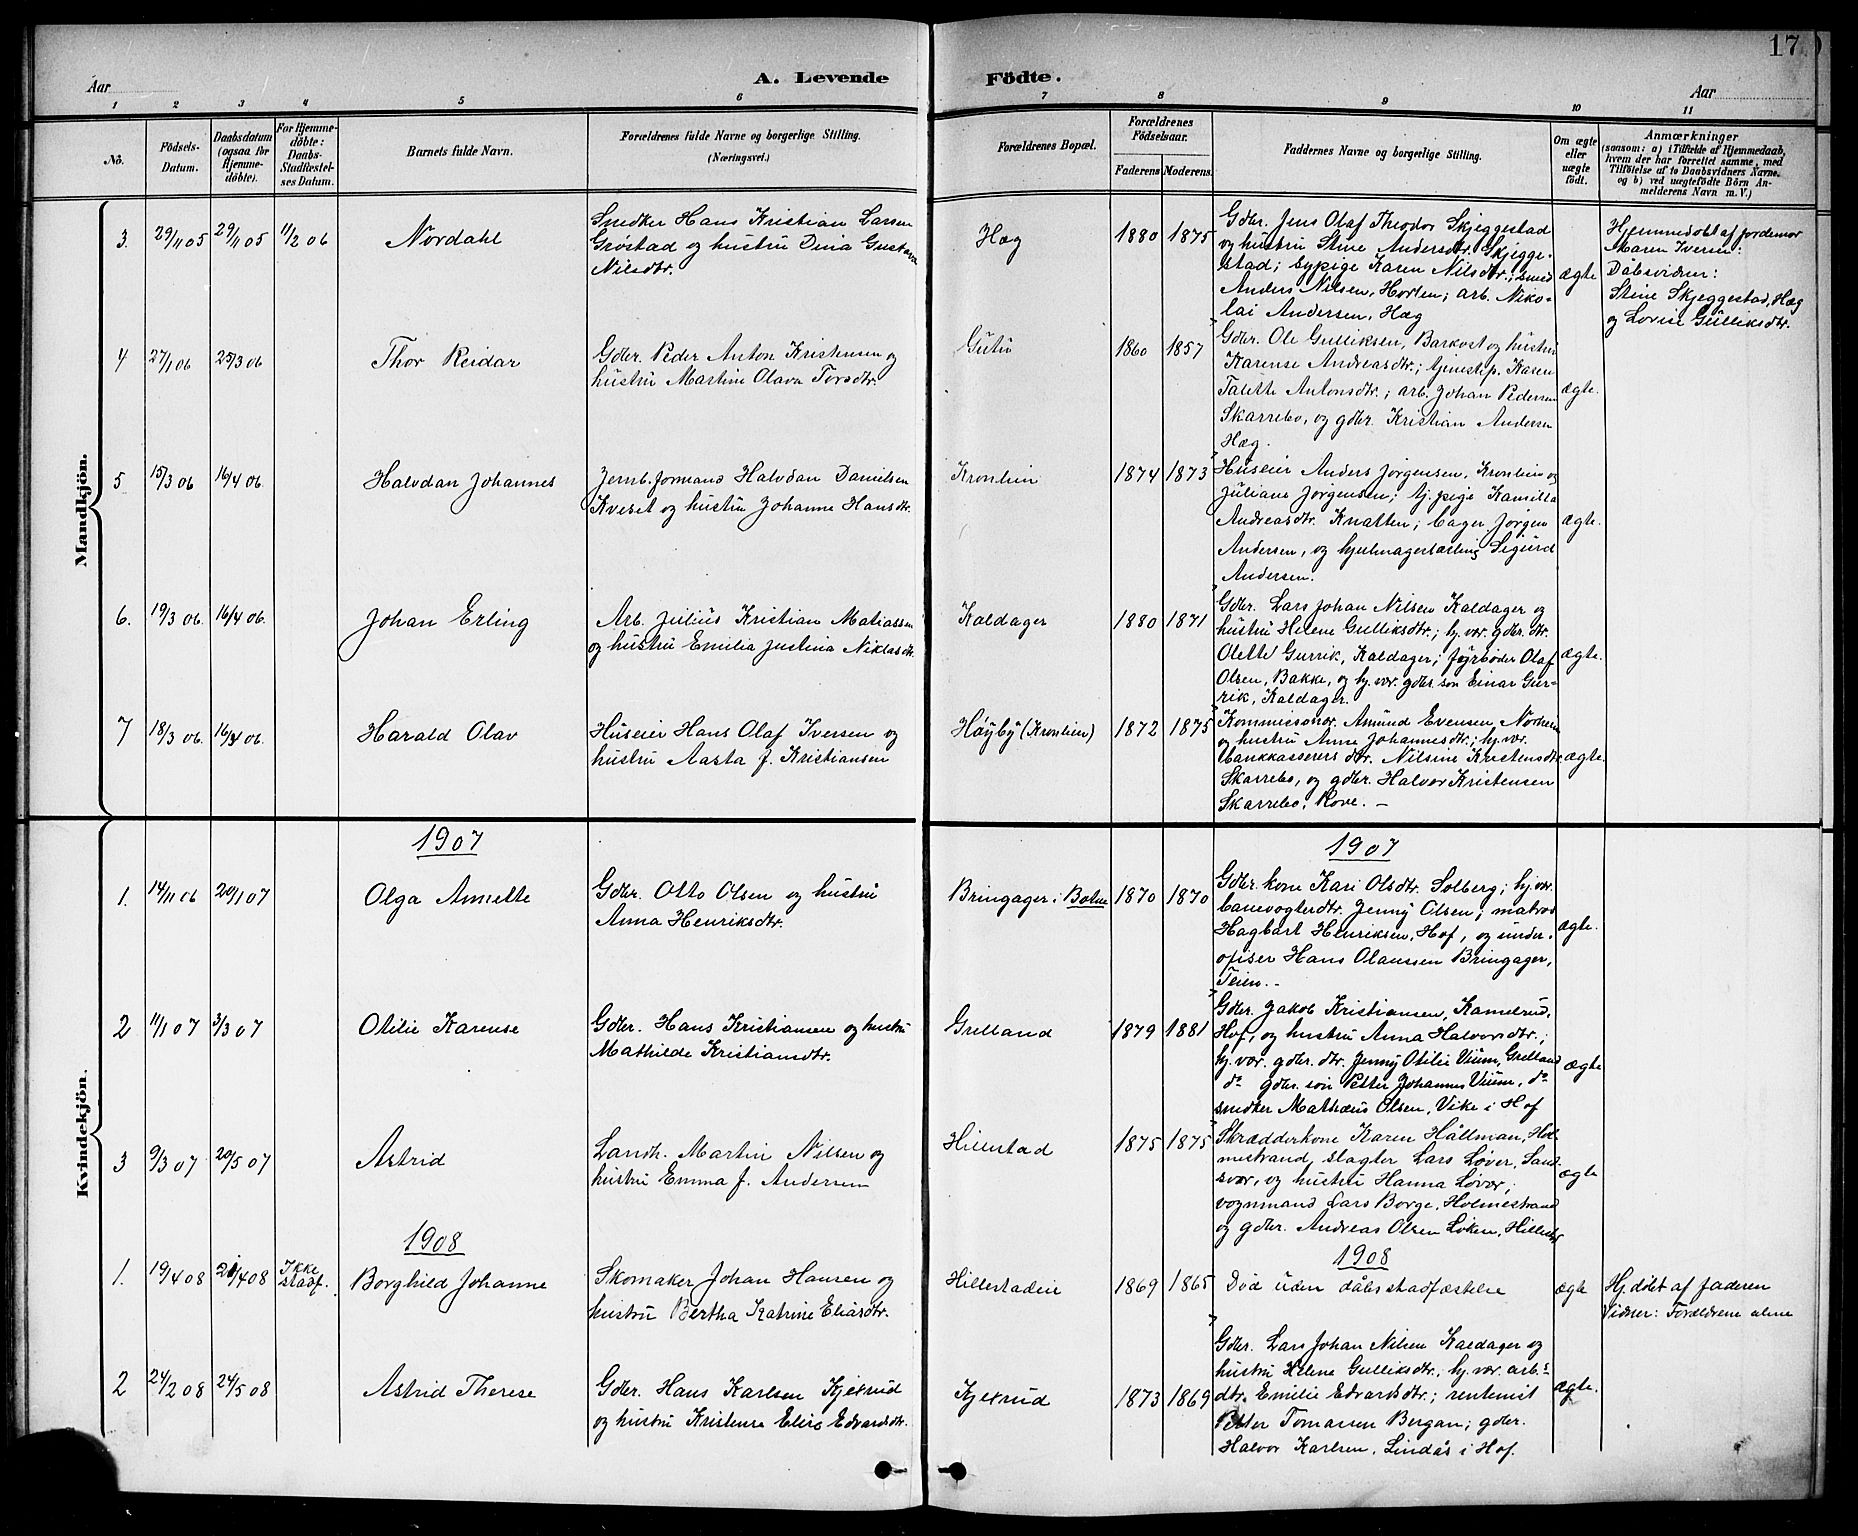 17
Aar
A. Levende Födte.
Aar
1 2 3 4 5 6 7 8 9 10 11
No.
Födsels-Datum.
Daabsdatum (ogsaa for Hjemme-döbte).
For Hjemme-döbte: Daabs-Stadfæstel-ses Datum.
Barnets fulde Navn.
Forældrenes fulde Navne og borgerlige Stilling.
(Næringsvei.)
Forældrenes Bopæl.
Forældrenes Födselsaar.
Faderens Moderens.
Faddernes Navne og borgerlige Stilling.
Om ægte eller uægte födt.
Anmærkninger
(saasom: a) i Tilfælde af Hjemmedaab, hvem der har forrettet samme, med Tilföielse af to Daabsvidners Navne. og b) ved uægtefödte Börn An-melderens Navn m. V.)
Mandkjön.
3. 29/11 05 29/11 05 11/2 06 Nordahl
Snedker Hans Kristian Larsen
Grøstad og hustru Dina Gustava
Nilsdtr.
Hæg 1880 1875
Gdbr. Jens Olaf Theodor Skjeggestad
og hustru Stine Andersdtr. Skjegge-
stad; sypige Karen Nilsdtr.; smed
Anders Nilsen, Horten; arb. Niko-
lai Andersen, Hæg
ægte
Hjemmedøbt af jordemor
Maren Iversen:
Dåbsvidner:
Stine Skjeggestad, Hæg
og Lovise Gulliksdtr.
4 27/1 06 25/3 06 Thor Reidar
Gdbr. Peder Anton Kristensen og
hustru Martine Olava Torsdtr.
Gutu 1860 1857
Gdbr. Ole Gulliksen, Barkost og hustru
Karense Andreasdtr.; tjenestep. Karen
Talette Antonsdtr.; arb. Johan Pedersen
Skarrebo, og gdbr. Kristian Andersen
Hæg.
ægte.
5 15/3 06 16/4 06. Halvdan Johannes
Jernb. formand Halvdan Danielsen
Kveset og hustru Johanne Hansdtr.
Kronlien 1874 1873
Huseier Anders Jørgensen, Kronlien og
Juliane Jørgensen; tj. pige Kamilla
Andreasdtr. Knatten; bager Jørgen
Andersen, og hjulmagerlærling Sigurd
Andersen.
ægte.
6. 19/3 06. 16/4 06. Johan Erling
Arb. Julius Kristian Matiassen
og hustru Emilia Justina Niklasdtr.
Kaldager 1880 1871
Gdbr. Lars Johan Nilsen Kaldager og
hustru Helene Gulliksdtr.; hj. vær. gdbr. dtr.
Olette Gurrik, Kaldager; fyrbøder Olaf
Olsen, Bakke, og hj. vær. gdbr. søn Einar Gur-
rik, Kaldager.
ægte.
7 18/3 06. 16/4 06. Harald Olav
Huseier Hans Olaf Iversen og
hustru Aasta J. Kristiansen
Høyby (Kronlien) 1872 1875
Kommissonær. Amund Evensen,
og hustru Anne Johannesdtr.; hj. vær.
bankkasserers dtr. Nilsine Kristensdtr.
Skarrebo, og gdbr. Halvor Kristensen
Skarrebo, Rove. –
ægte.
Kvindekjön.
1907 1907
1. 14/11 06 20/1 07 Olga Annette
Gdbr. Otto Olsen og hustru
Anna Henriksdtr.
Bringager i Botne 1870 1870
Gdbr. kone Kari Olsdtr. Solberg; hj. vær.
banevogterdtr. Jenny Olsen; matros
Hagbart Henriksen, Hof, og under-
ofiser Hans Olaussen Bringager,
Teien. –
ægte.
2 11/1 07 3/3 07 Otilie Karense
Gdbr. Hans Kristiansen og hustru
Mathilde Kristiansdtr.
Grelland 1879 1881
Gdbr. Jakob Kristiansen, Kamelrud,
Hof, og hustru Anna Halvorsdtr.;
hj. vær. gdbr. dtr. Jenny Otilie Vium, Grelland
do gdbr. søn Petter Johannes Vium, do
snedker Mathæus Olsen, Vike i Hof
ægte
3 9/3 07 20/5 07 Astrid
Landh. Martin Nilsen og
hustru Emma J. Andersen
Hillestad 1875 1875
Skrædderkone Karen Hållman, Hol-
mestrand, slagter Lars Løver, Sand-
svær, og hustru Hanna Løver,;
vognmand Lars Borge, Holmestrand
og gdbr. Andreas Olsen Løken, Hillestad
ægte
1908 1908
1. 19/4 08 21/4 08 Ikke stadf. Borghild Johanne
Skomaker Johan Hansen og
hustru Bertha Katrine Eliasdtr.
Hillestadeie 1869 1865
Død uden dåbsstadfæstelse
ægte
Hj. døbt af faderen
Vidner: Forældrene alene
2 24/2 08 24/5 08 Astrid Therese
Gdbr. Hans Karlsen Kjexrud
og hustru Kristense Elise Edvardsdtr.
Kjexrud 1873 1869
Gdbr. Lars Johan Nilsen Kaldager og
hustru Helene Gulliksdtr.; hj. vær. arb.s
dtr. Emilie Edvardsdtr.; rentenist
Petter Tomassen Bergan; gdbr.
Halvor Karlsen, Lindås i Hof.
ægte.